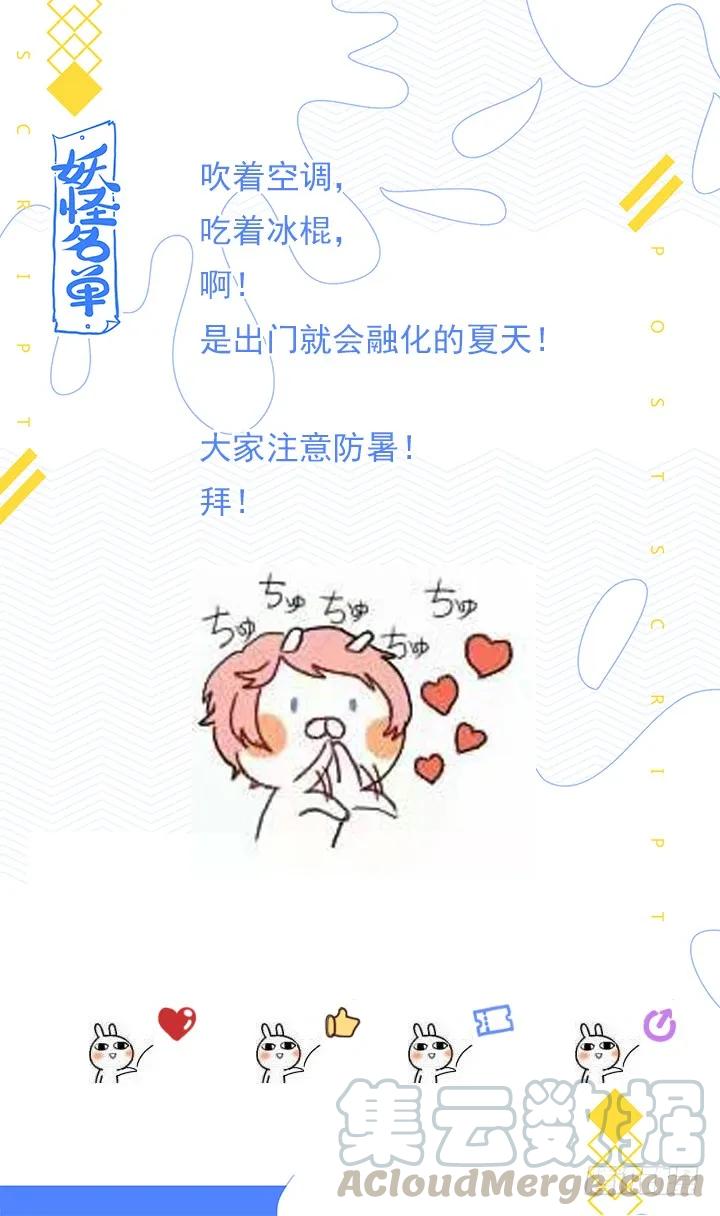 SCRIPT
妖怪名单
吹着空调，
吃着冰棍，
啊！
是出门就会融化的夏天！
大家注意防暑！
拜！
POSTSCRIPT
ちゅ
ちゅ
ちゅ
ちゅ
ちゅ
集云数据
ACloudMerge.com